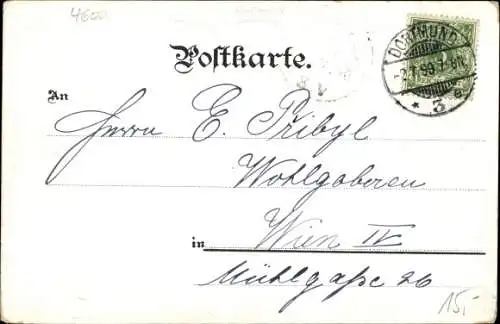 4600
Postkarte.
DORTMUND
* 3 e.
An
Herrn E. Pribyl
Wohlgeboren
in Wien IV
Mühlgaße 26
15,-